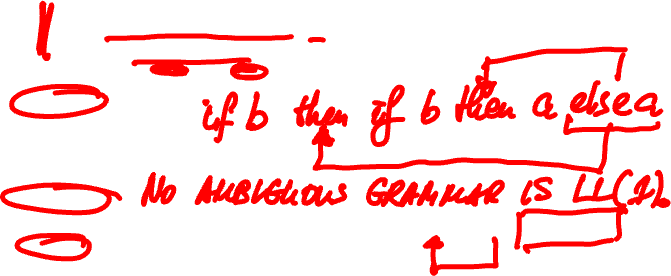 if b then if b then a else a
NO AMBIGUOUS GRAMMAR IS LL(1).